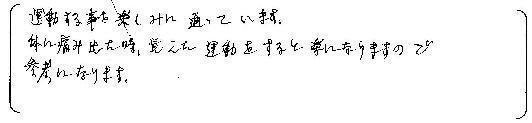 運動する事を楽しみに通っています。
体に痛み出た時、覚えた運動をすると楽になりますので
参考になります。